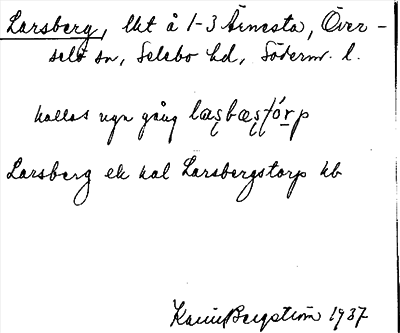 Larsberg, lht å 1-3 Årnesta, Över-
selö sn, Selebo hd, Söderm. l.
kallas ngn gång
Larsberg ek kal Larsbergstorp hb
Karin Bergström 1937